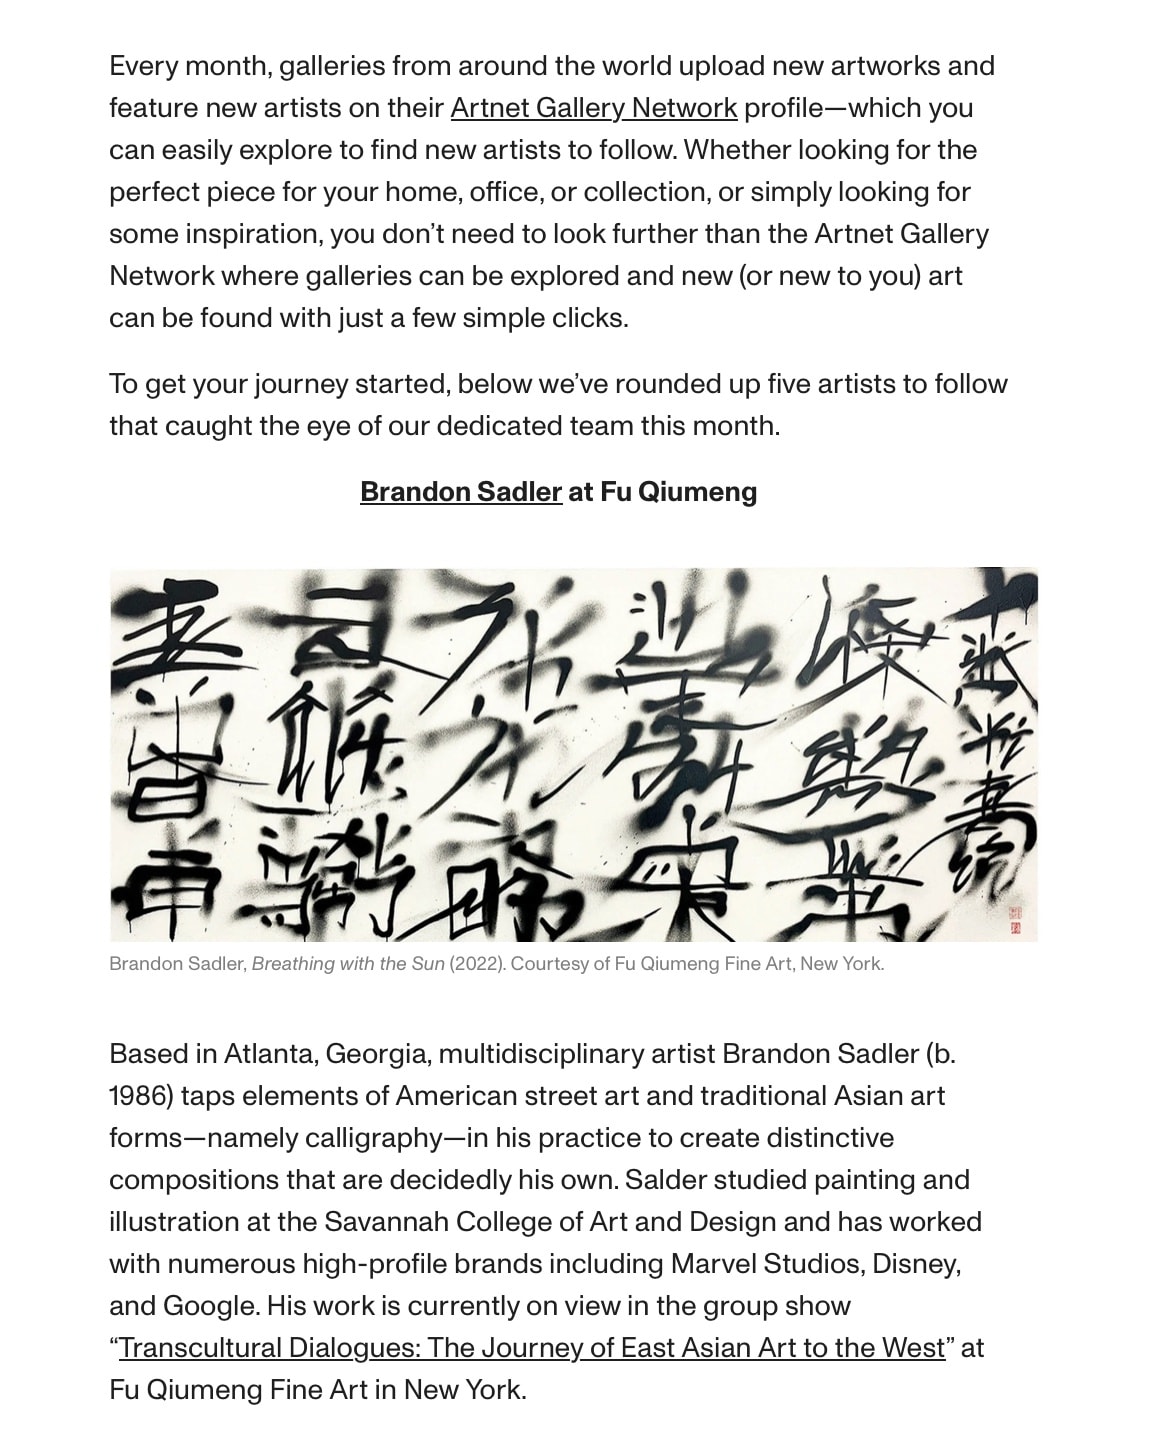 Every month, galleries from around the world upload new artworks and
feature new artists on their Artnet Gallery Network profile—which you
can easily explore to find new artists to follow. Whether looking for the
perfect piece for your home, office, or collection, or simply looking for
some inspiration, you don’t need to look further than the Artnet Gallery
Network where galleries can be explored and new (or new to you) art
can be found with just a few simple clicks.
To get your journey started, below we’ve rounded up five artists to follow
that caught the eye of our dedicated team this month.
Brandon Sadler at Fu Qiumeng
Brandon Sadler, Breathing with the Sun (2022). Courtesy of Fu Qiumeng Fine Art, New York.
Based in Atlanta, Georgia, multidisciplinary artist Brandon Sadler (b.
1986) taps elements of American street art and traditional Asian art
forms—namely calligraphy—in his practice to create distinctive
compositions that are decidedly his own. Salder studied painting and
illustration at the Savannah College of Art and Design and has worked
with numerous high-profile brands including Marvel Studios, Disney,
and Google. His work is currently on view in the group show
“Transcultural Dialogues: The Journey of East Asian Art to the West” at
Fu Qiumeng Fine Art in New York.